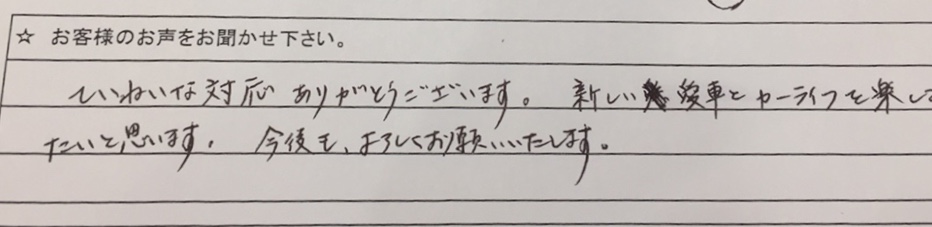 ☆ お客様のお声をお聞かせ下さい。
ていねいな対応ありがとうございます。新しい愛車とカーライフを楽し
たいと思います。今後も、よろしくお願いいたします。